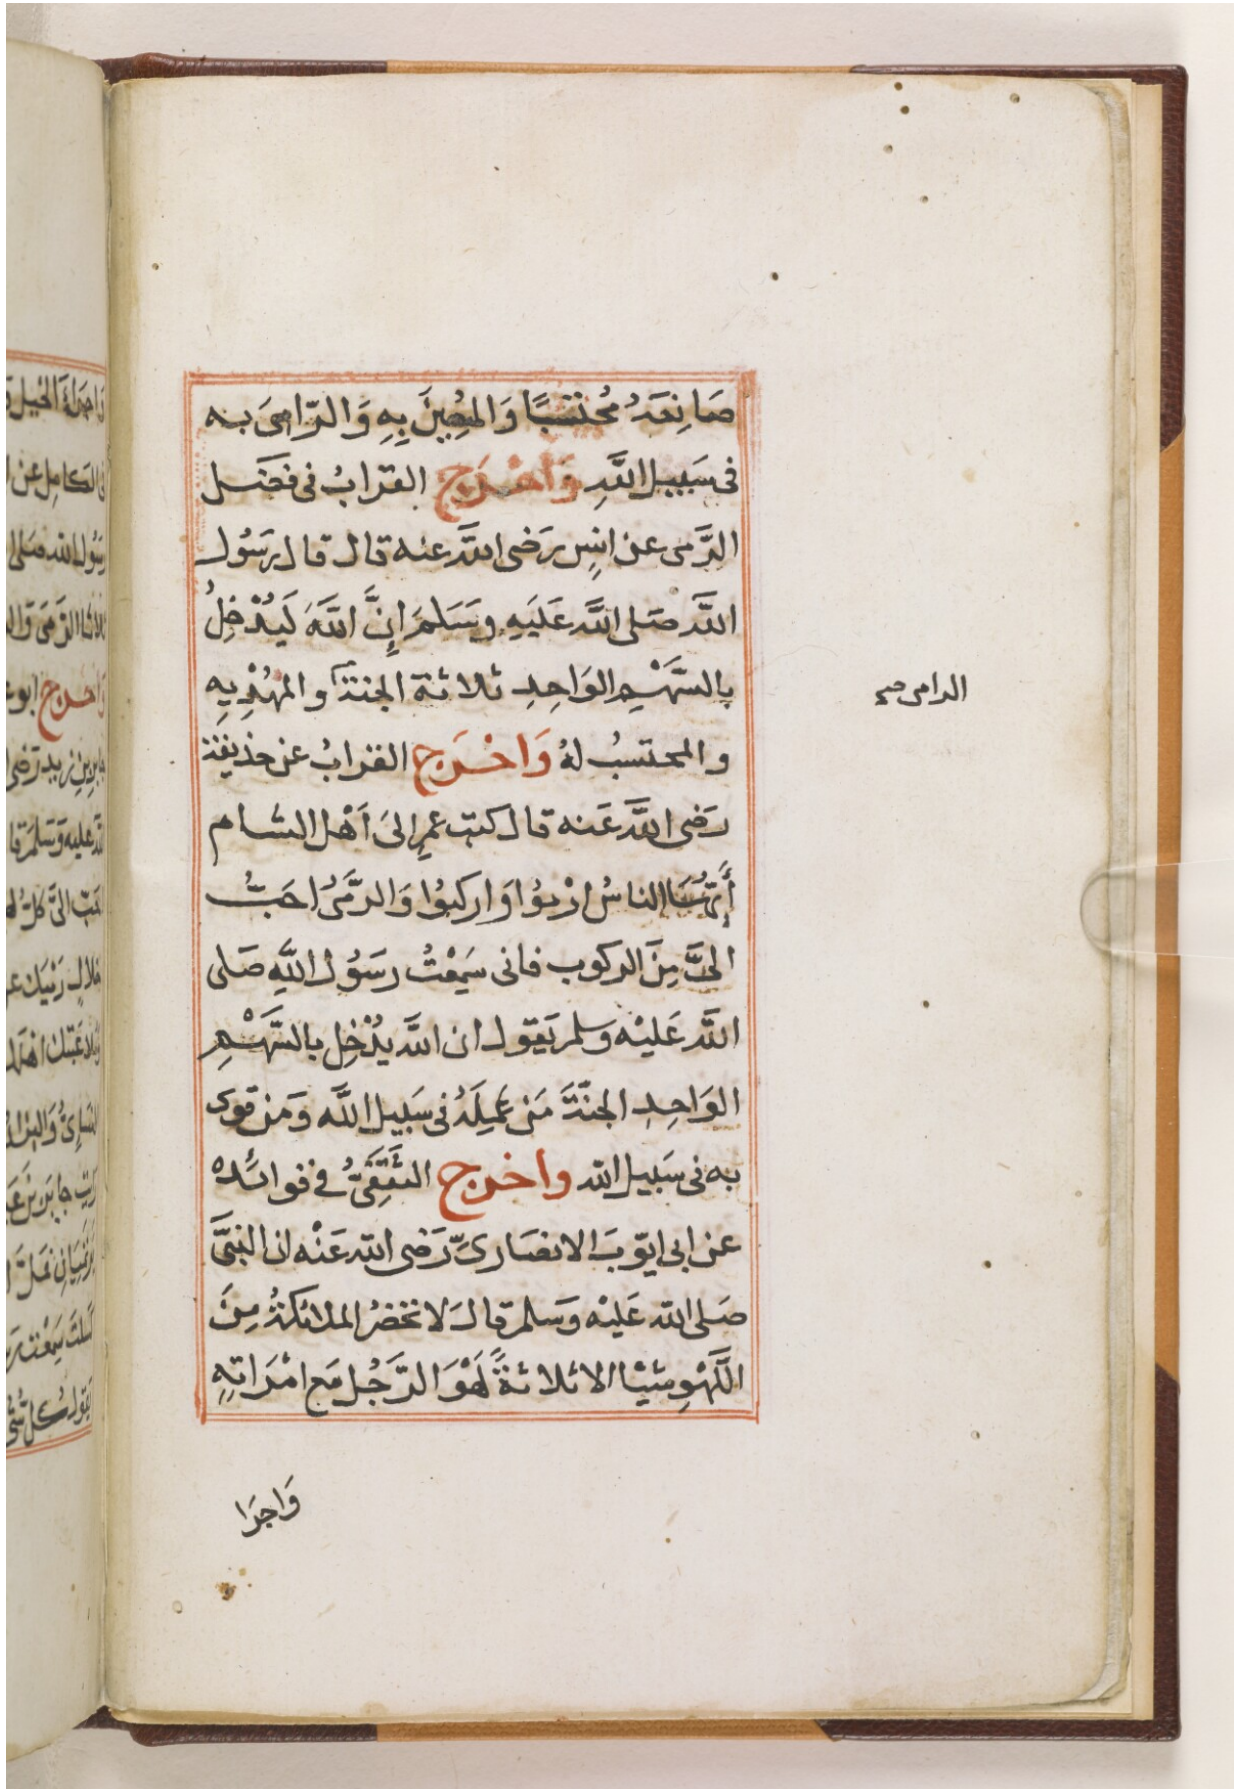 صَانِعَهُ مُحْتَسِبًا وَالمُعِينَ بِهِ وَالرّامِىَ به
فى سَبِيلِ اللَّهِ وَاَخْرَج القرابُ فى فضَل
الرَّمى عن انسٍ رَضى اللَّه عنه قال قال رَسُول
اللَّه صَلى اللَّه عَلَيهِ وسَلمَ اِنَّ اللَّهَ لَيُدْخِلُ
بِالسَّهْمِ الوَاحِدِ ثلاثة الجنةَ و المهْدِىِ بِهِ
و المحتسبُ لهُ وَاخْرَج القرابُ عن حذيفة
رَضى اللَّه عَنه قال كتب عمر اِلىَ اَهْل الشام
أَيُّهَا الناسُ ارْموُا وَاركبوُا وَالرَّمىُ احَبُّ
الىَّ مِنَ الركوب فانى سَمِعْتُ رسَوُل اللَّهِ صَلى
اللَّه عَليْه وسلم يَقول ان اللَّه يُدْخِل بالسَّهْمِ
الوَاحِدِ الجنّةَ مَنْ عَمِلَهُ فى سَبِيل اللَّه وَمن قوى
به فى سَبيل اللّه واخرج الثقَفىُّ فى فوائده
عن ابى ايّوبَ الانصَارىّ رَضى اللّه عَنْه ان النبىَّ
صَلى اللّه عَليْه وَسلم قال لا تحْضرُ الملائكةُ مِنَ
اللَّهْوِ شيْا الا ثلاثةً لَهْوَ الرَّجُل مَع امْرَاتِهِ
الرامى صح
وَاجرَا